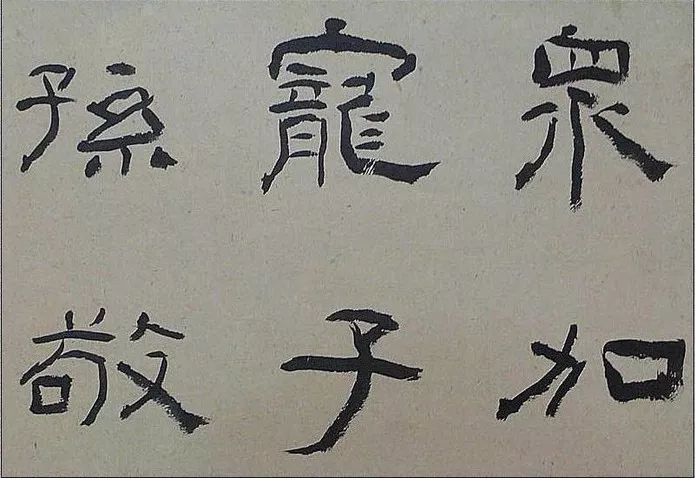 眾加
寵子
孫敬